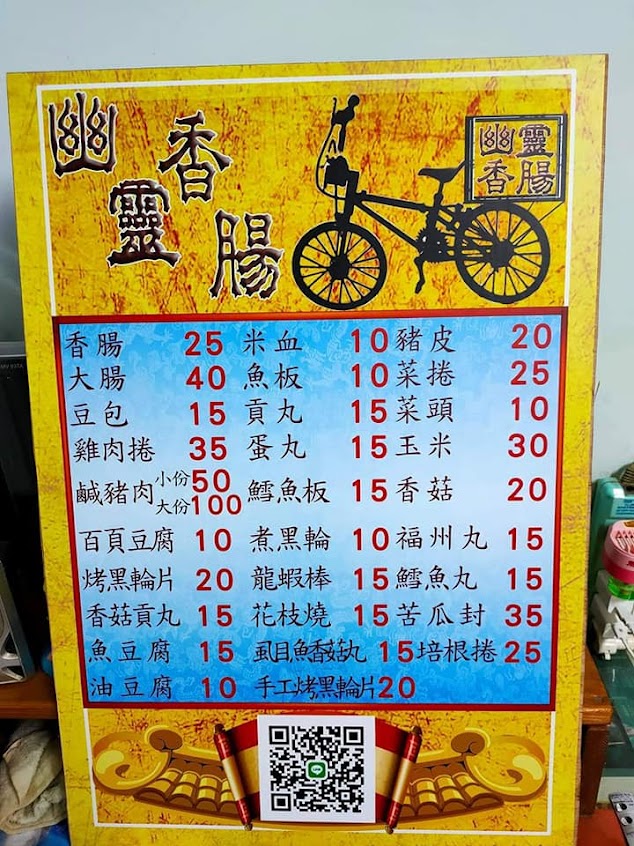 幽靈香腸
幽靈
香腸
香腸 25 米血 10 豬皮 20
大腸 40 魚板 10 菜捲 25
豆包 15 貢丸 15 菜頭 10
雞肉捲 35 蛋丸 15 玉米 30
鹹豬肉 小份 50 大份 100 鱈魚板 15 香菇 20
百頁豆腐 10 煮黑輪 10 福州丸 15
烤黑輪片 20 龍蝦棒 15 鱈魚丸 15
香菇貢丸 15 花枝燒 15 苦瓜封 35
魚豆腐 15 虱目魚香菇丸 15 培根捲 25
油豆腐 10 手工烤黑輪片 20
LINE